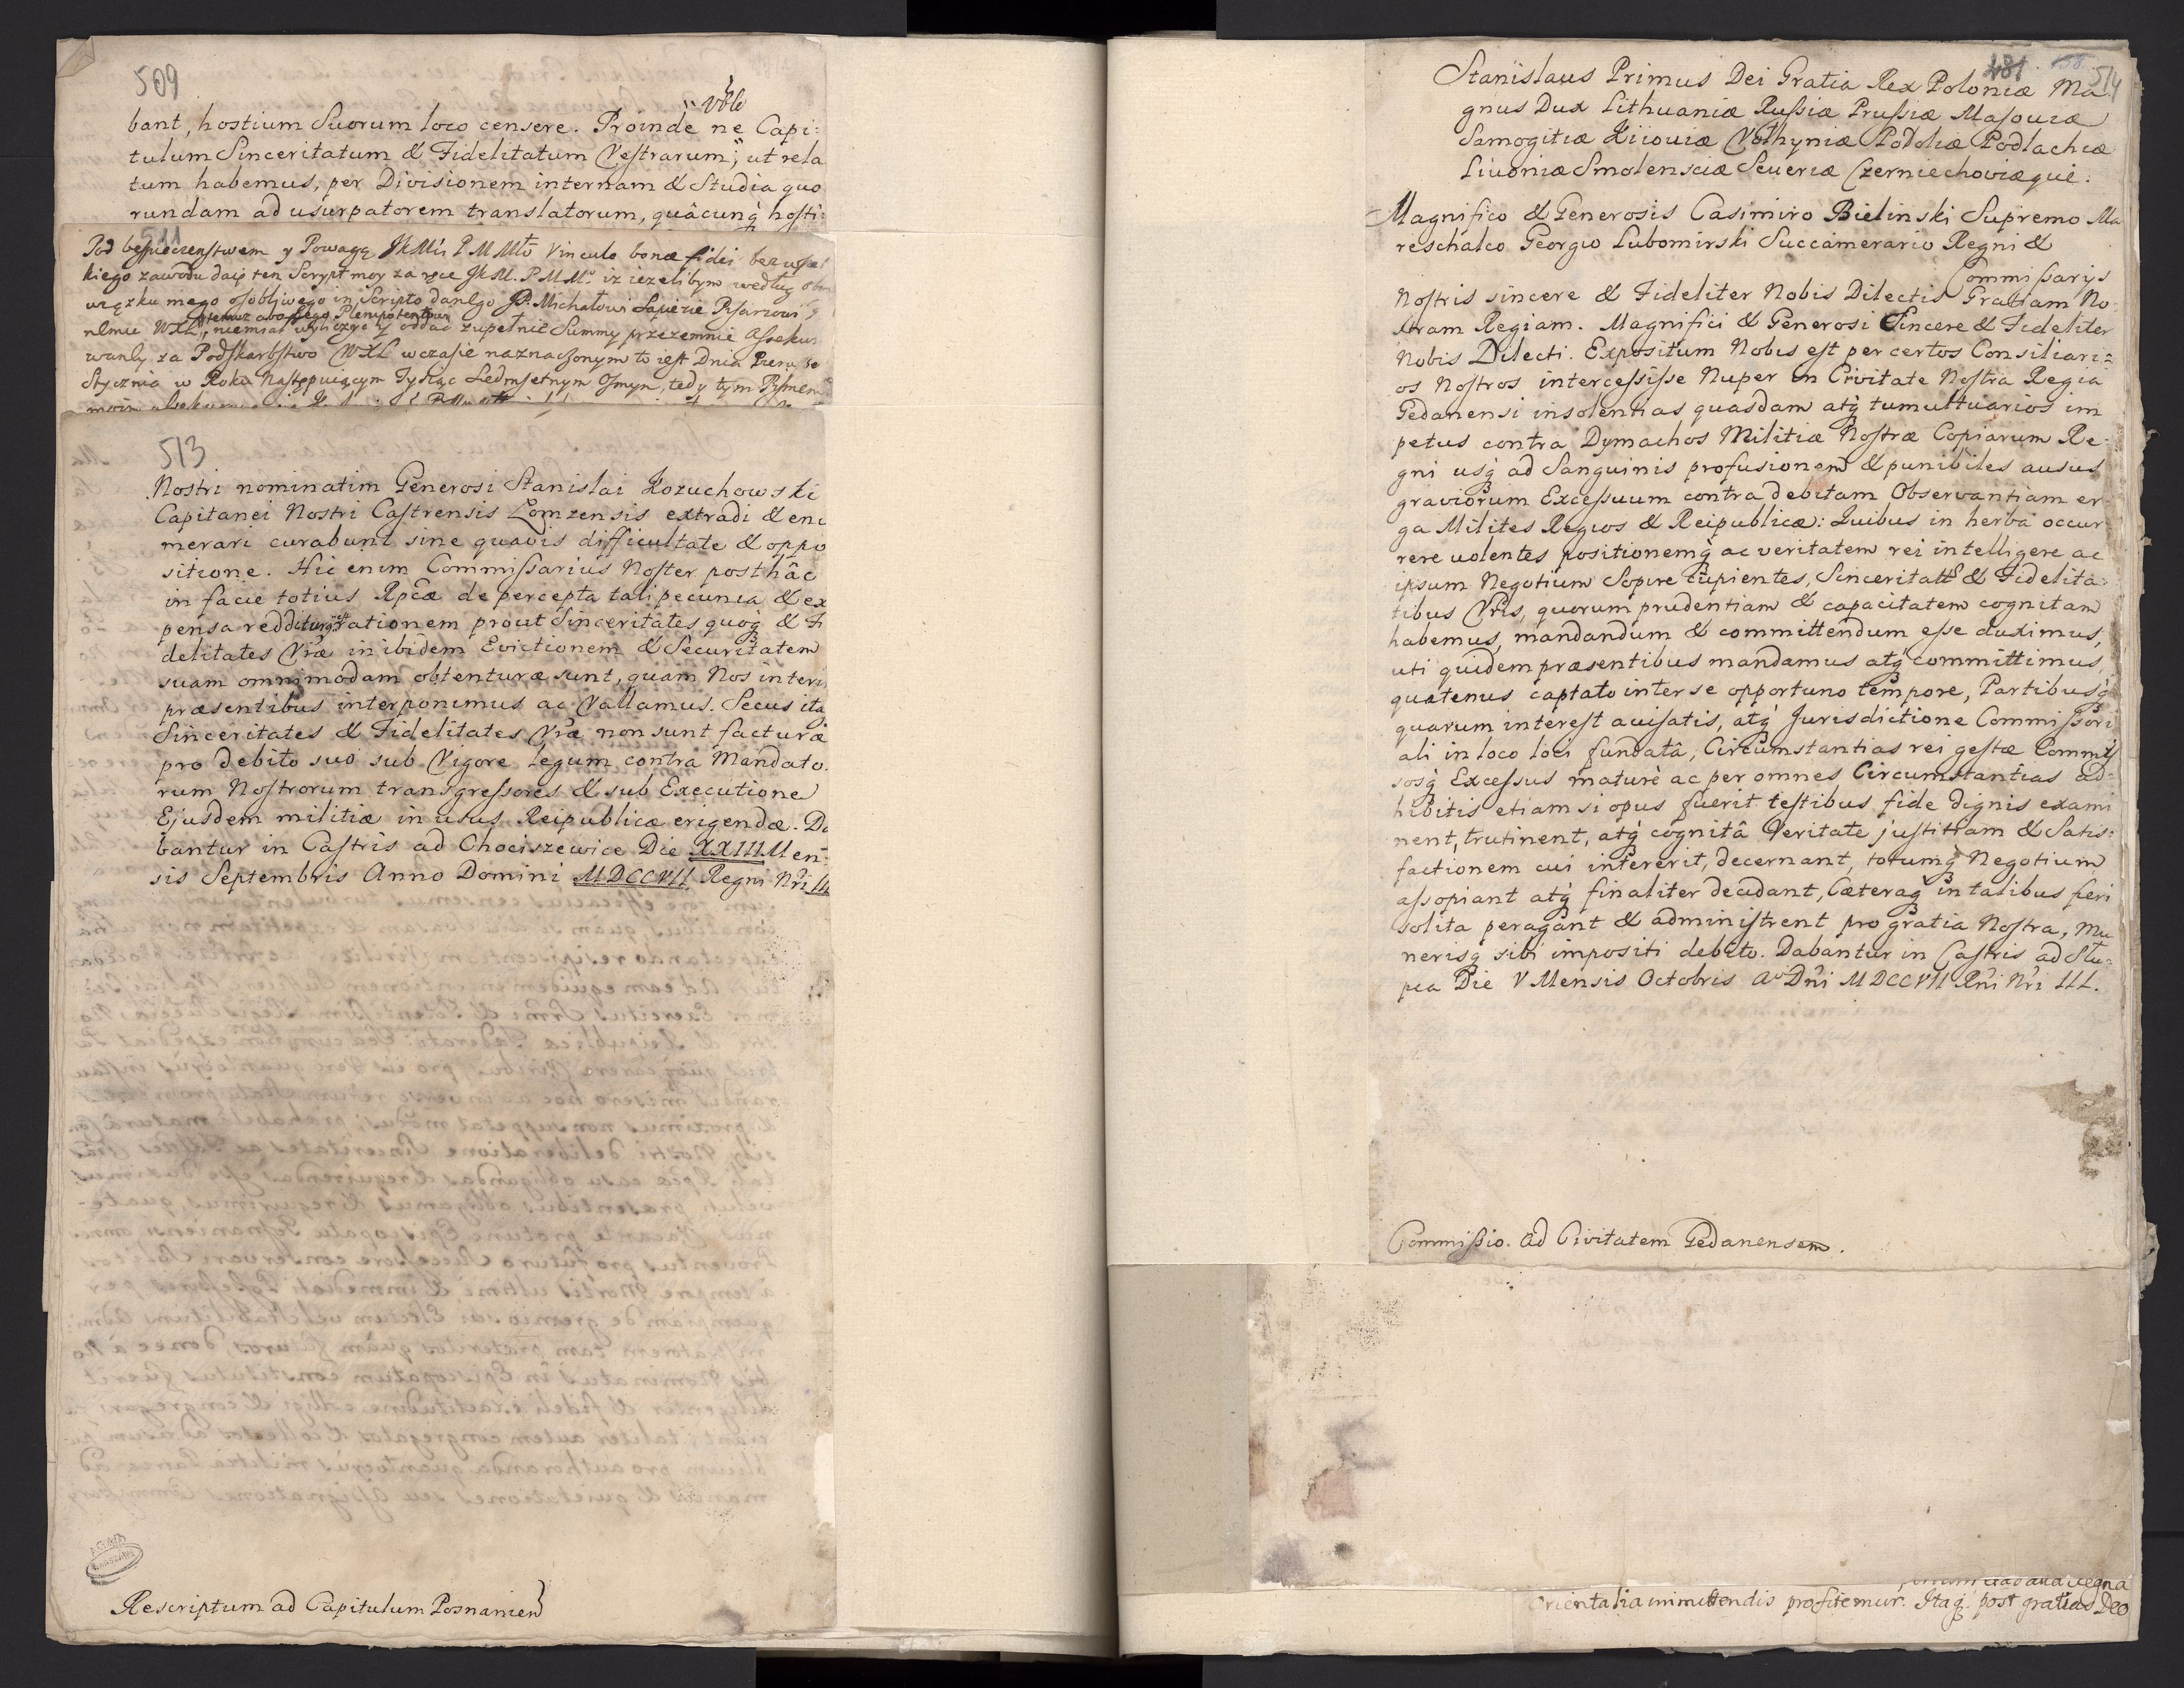 509
vble
bant, hostium Suorum loco censere. Proinde ne Capi:
tulum Sinceritatum & Fidelitatum Vestrarum, ut rela
tum habemus, per Divisionem internam & Studia quo
rundam ad usurpatorem translatorum, quâcunq hosti:
511
Pod bespieczenstwem y Powagą JKMći P M Mło Vinculo bonæ fidei bez
kiego zawodu daię ten Skrypt moy za ręce JKM. P M M. iz iezelibym według
wiązku mego osobliwego in Scripto danego JP. Michałowi Sapiezie Pisarzowi
niemiał wyliczyć y oddać zupełnie Summy przezemnie Assekur
waney za Podskarbstwo WXL w czasie naznaczonym to iest Dnia Pierwsze
Stycznia w Roku Następuiącym Tysiąc Sedmsetnym Osmym, tedy tym Pismem
moim
513
Nostri nominatim Generosi Stanislai Kozuchowski
Capitanei Nostri Castrensis Lomzensis extradi & enu
merari curabunt sine quavis difficultate & oppo
sitione. Hic enim Commissarius Noster posthâc
in facie totius Rpcæ de percepta tali pecunia & ex
pensa redditurus rationem prout Sinceritates quoq & Fi
delitates Vræ inibidem Evictionem & Securitatem
suam omnimodam obtenturæ sunt, quam Nos interi
præsentibus interponimus ac Vallamus. Secus ita
Sinceritates & Fidelitates Vræ non sunt facturæ
pro debito suo sub Vigore legum contra Mandato.
rum Nostrorum transgressores & sub Executione
Ejusdem militiæ in usus Reipublicæ erigendæ. Da
bantur in Castris ad Chociszewice Die XXIII Men:
sis Septembris Anno Domini MDCCVII Regni Nri III
Rescriptum ad Capitulum Posnanien
481 514
Stanislaus Primus Dei Gratia Rex Poloniæ Ma
gnus Dux Lithuaniæ Russiæ Prussiæ Masouiæ
Samogitiæ Kiiouiæ Volhyniæ Podoliæ Podlachiæ
Liuoniæ Smolensciæ Seueriæ Czerniechoviæque.
Magnifico & Generosis Casimiro Bielinski Supremo Ma
reschalco Georgio Lubomirski Succamerario Regni &
Commissarys
Nostris sincere & Fideliter Nobis Dilectis Gratiam No
stram Regiam. Magnifici & Generosi Sincere & Fideliter
Nobis Dilecti. Expositum Nobis est per certos Consiliari=
os Nostros intercessisse Nuper in Civitate Nostra Regia
Gedanensi insolentias quasdam atq tumultuarios im
petus contra Dymachos Militiæ Nostræ Copiarum Re-
gni usq ad Sanguinis profusionem & punibiles ausus
graviorum Excessuum contra debitam Observantiam er
ga Milites Regios & Reipublicæ: Quibus in herba occur
rere uolentes positionemq ac veritatem rei intelligere ac
ipsum Negotium Sopire cupientes, Sinceritatt & Fidelita:
tibus Vris, quorum prudentiam & capacitatem cognitam
habemus, mandandum & committendum esse duximus,
uti quidem præsentibus mandamus atq committimus,
quatenus captato inter se opportuno tempore, Partibusq
quarum interest auisatis, atq Jurisdictione Commissori
ali in loco loci fundatâ, Circumstantias rei gestæ Commis
sosq Excessus maturè ac per omnes Circumstantias ad=
hibitis etiam si opus fuerit testibus fide dignis exami
nent, trutinent, atq cognitâ Veritate justitiam & Satis:
factionem cui intererit, decernant, totumq Negotium
assopiant atq finaliter decidant, Cæteraq in talibus fieri
solita peragant & administrent pro gratia Nostra, Mu
nerisq sibi impositi debito. Dabantur in Castris ad Slu=
pca Die V Mensis Octobris Ao Dni MDCCVII Rni Nri III.
Commissio. ad Civitatem Gedanensem.
Orientalia inimittendis profitemur. Itaq post gratias Deo